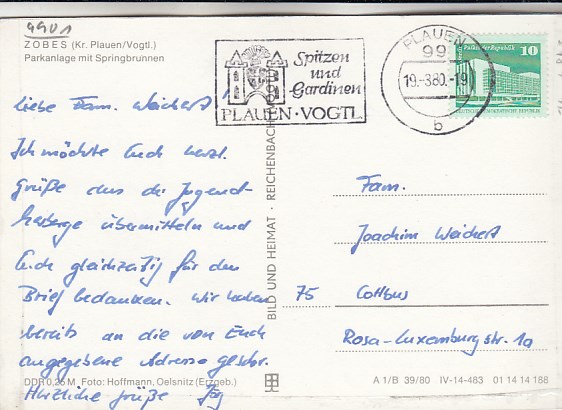 9901
ZOBES (Kr. Plauen/Vogtl.)
Parkanlage mit Springbrunnen
Spitzen
und
Gardinen
PLAUEN · VOGTL.
PLAUEN
99
19.-3.80.-19
b
Palast der Republik 10
DEUTSCHE DEMOKRATISCHE REPUBLIK
liebe Fam. Weichert!
Ich möchte Euch herzl.
Grüße aus der Jugend-
herberge übermitteln und
Euch gleichzeitig für den
Brief bedanken. Wir haben
bereits an die von Euch
angegebene Adresse geschr.
Herzliche Grüße
BILD UND HEIMAT · REICHENBACH
Fam.
Joachim Weichert
75 Cottbus
Rosa-Luxemburgstr. 1a
DDR 0,25 M Foto: Hoffmann, Oelsnitz (Erzgeb.)
A 1/B 39/80 IV-14-483 01 14 14 188